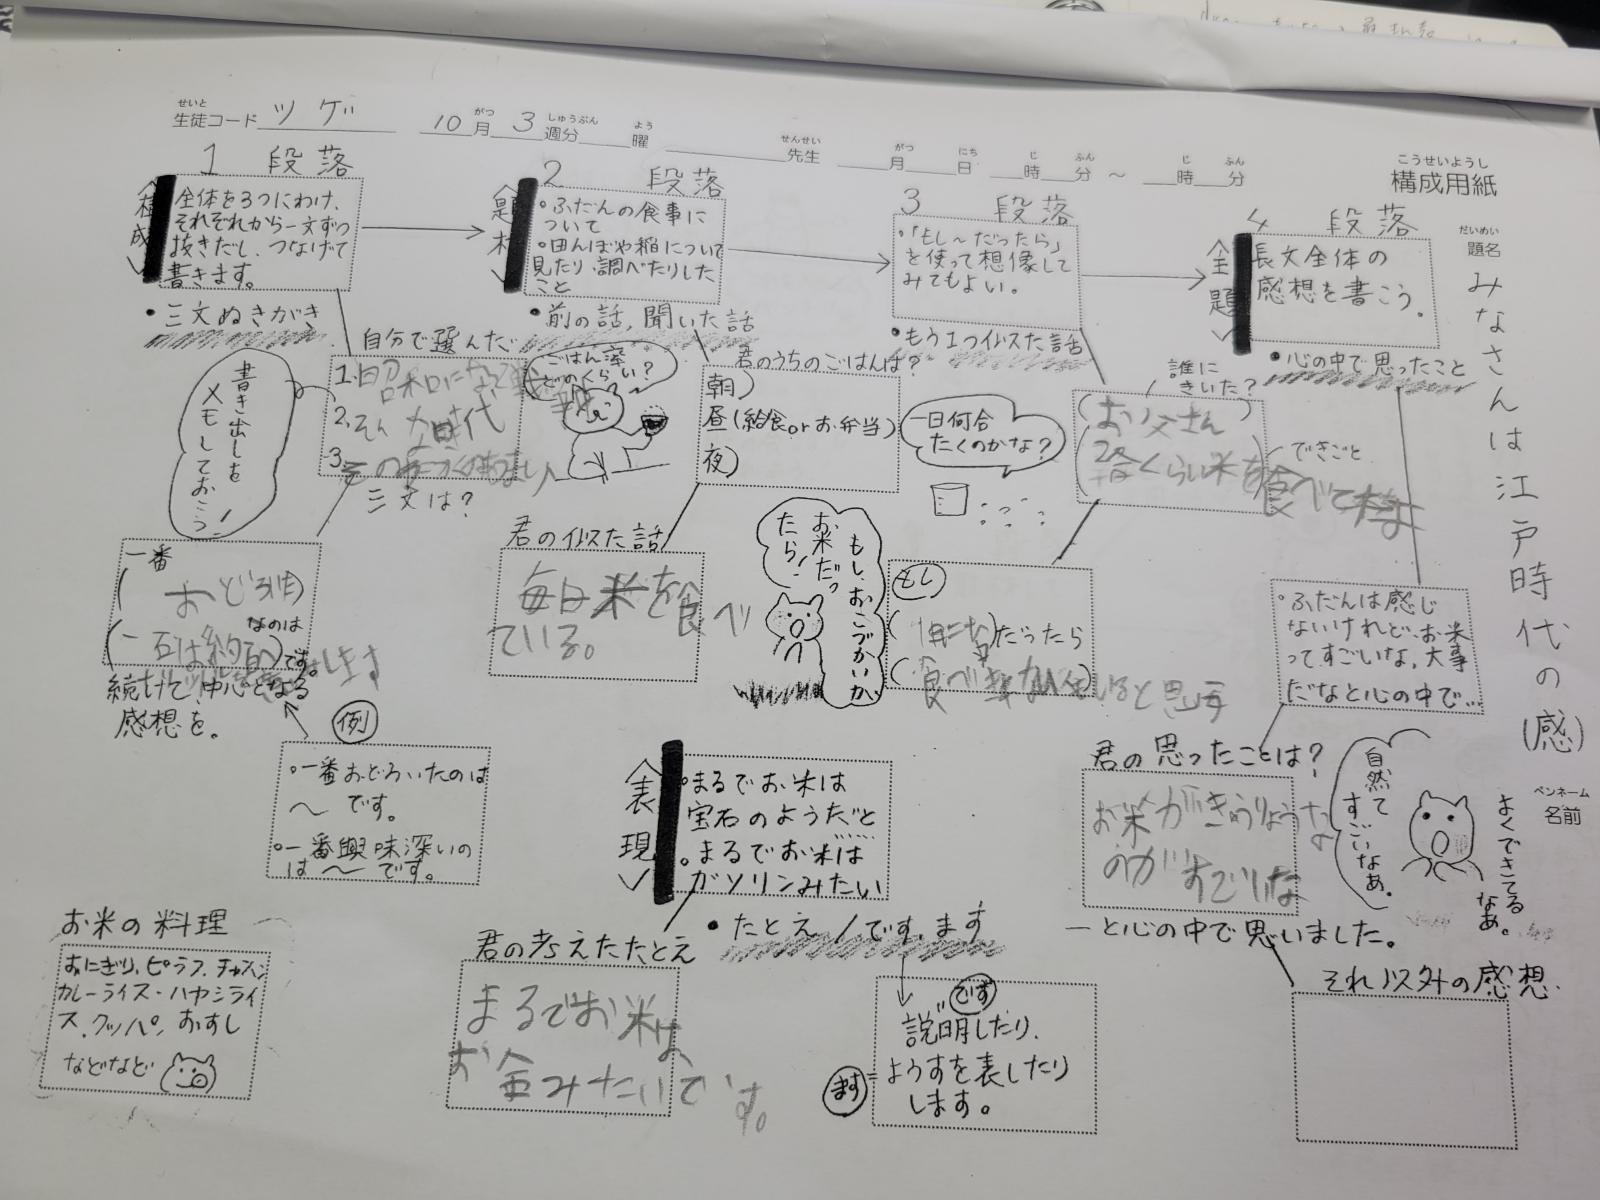 せいと
生徒コード ツゲ
10 月 3 週分 曜
がつ しゅうぶん よう
先生 月 日 時 分 ～ 時 分
せんせい がつ にち じ ふん じ ふん
こうせいようし
構成用紙
だいめい
題名
みなさんは江戸時代の(感)
ペンネーム
名前
1 段落
構成
全体を3つにわけ、
それぞれから一文ずつ
抜きだし、つなげて
書きます。
・三文ぬきがき
自分で選んだ
書き出しを
メモしておこう!
1.昭和に
2.
3.
三文は?
一番
おどろいた
なのは
です。
続けて中心となる
感想を。
例
・一番おどろいたのは
～です。
・一番興味深いの
は～です。
お米の料理
おにぎり、ピラフ、チャーハン
カレーライス・ハヤシライ
ス、クッパ、おすし
などなど
2 段落
題材
・ふだんの食事に
ついて
・田んぼや稲について
見たり、調べたりした
こと
・前の話、聞いた話
ごはん茶
どのくらい?
君のうちのごはんは?
朝)
昼(給食orお弁当)
夜)
君の似た話
毎日米を食べ
ている。
もし、おこづかいが、
お米だっ
たら!
表現
・まるでお米は
宝石のようだと
・まるでお米は
ガソリンみたい
・たとえ/です、ます
君の考えたたとえ
まるでお米は、
お金みたいです。
です
説明したり、
ます=ようすを表したり
します。
3 段落
・「もし～だったら」
を使って想像して
みてもよい。
・もう1つ似た話
一日何合
たくのかな?
誰に
きいた?
(お父さん)
できごと
くらい米を食べて
もし
だったら
食べ と思います
4 段落
全題
長文全体の
感想を書こう。
・心の中で思ったこと
・ふだんは感じ
ないけれど、お米
ってすごいな、大事
だなと心の中で…
君の思ったことは?
お米がきゅうりょうな
のがすごいな
―と心の中で思いました。
自然て
すごいなあ。
よくできてる
なあ。
それ以外の感想